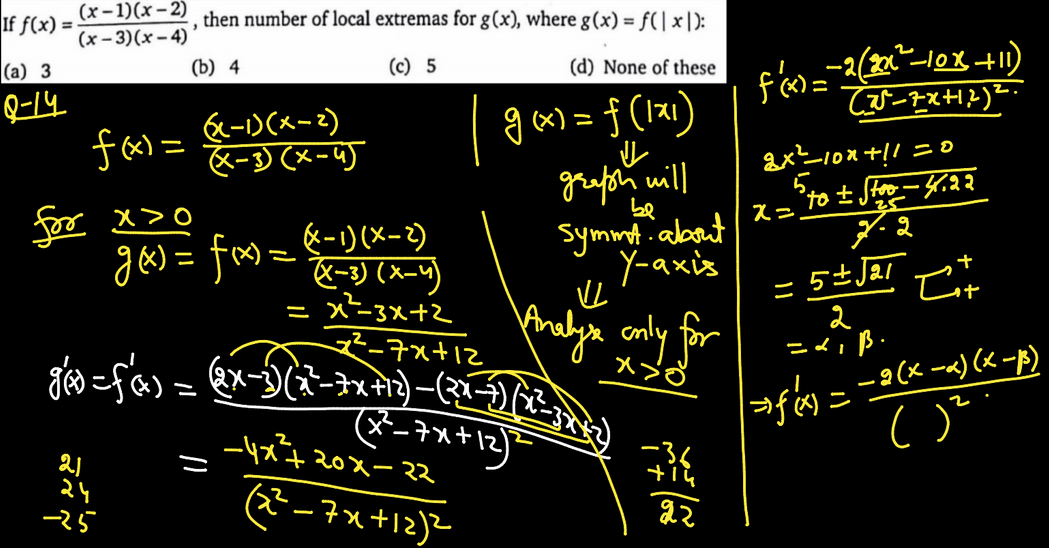 If f(x) = (x − 1)(x − 2) / (x − 3)(x − 4), then number of local extremas for g(x), where g(x) = f(| x |):
(a) 3 (b) 4 (c) 5 (d) None of these
Q-14
f(x) = (x-1)(x-2) / (x-3)(x-4)
for x > 0
g(x) = f(x) = (x-1)(x-2) / (x-3)(x-4)
= x²-3x+2 / x²-7x+12
g'(x) = f'(x) = (2x-3)(x²-7x+12) - (2x-7)(x²-3x+2) / (x²-7x+12)²
= -4x²+20x-22 / (x²-7x+12)²
21
24
-25
g(x) = f(|x|)
⇓
graph will
be
symmt. about
Y-axis
⇓
Analyse only for
x > 0
-36
+14
22
f'(x) = -2(2x²-10x+11) / (x²-7x+12)².
2x²-10x+11 = 0
x = 5 10 ± √100 - 4.22 / 2.2
25
= 5 ± √21 / 2 + +
= α, β.
⇒ f'(x) = -2(x-α)(x-β) / ( )².